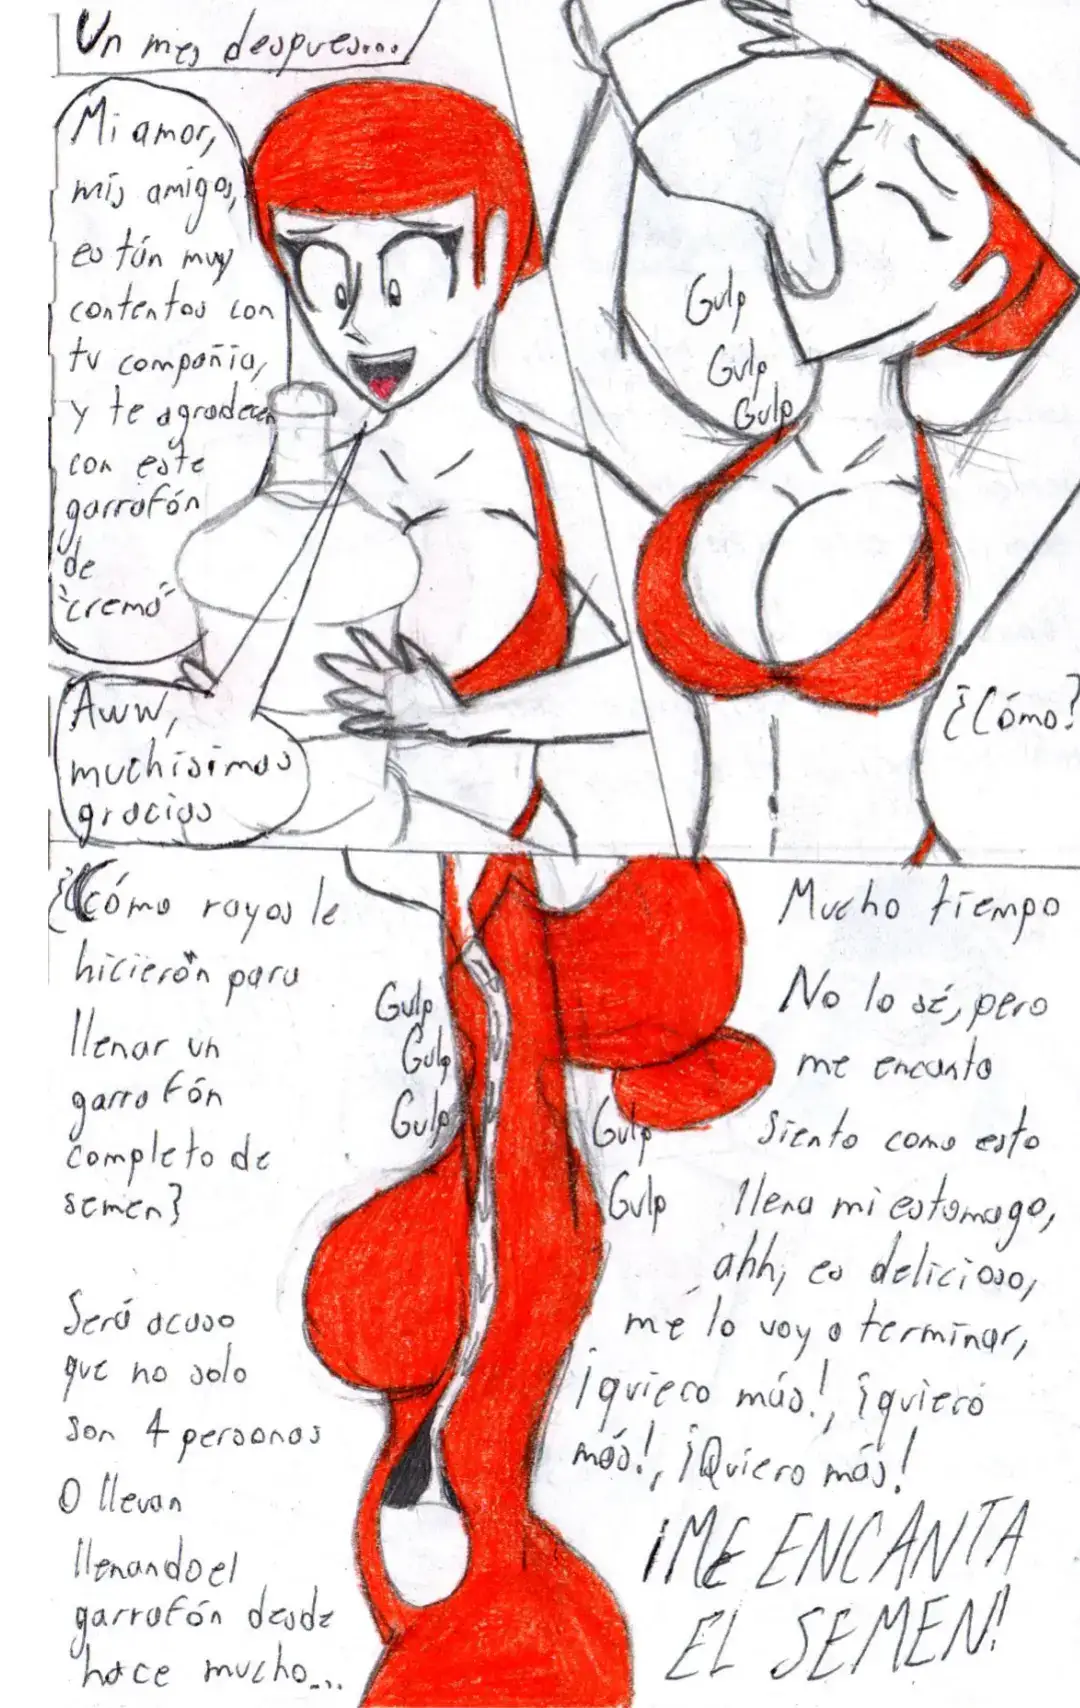 Un mes despues....
Mi amor,
mis amigos,
están muy
contentos con
tu compañia,
y te agradecen
con este
garrafón
de
"crema"
Aww,
muchisimas
gracias
Gulp
Gulp
Gulp
¿Cómo?
¿Cómo rayos le
hicierón para
llenar un
garrafón
completo de
semen?
Será acaso
que no solo
son 4 personas
O llevan
llenando el
garrafón desde
hace mucho...
Gulp
Gulp
Gulp
Gulp
Gulp
Mucho tiempo
No lo sé, pero
me encanta
siento como esto
llena mi estomago,
ahh, es delicioso,
me lo voy a terminar,
¡quiero más!, ¡quiero
más!, ¡Quiero más!
¡ME ENCANTA
EL SEMEN!